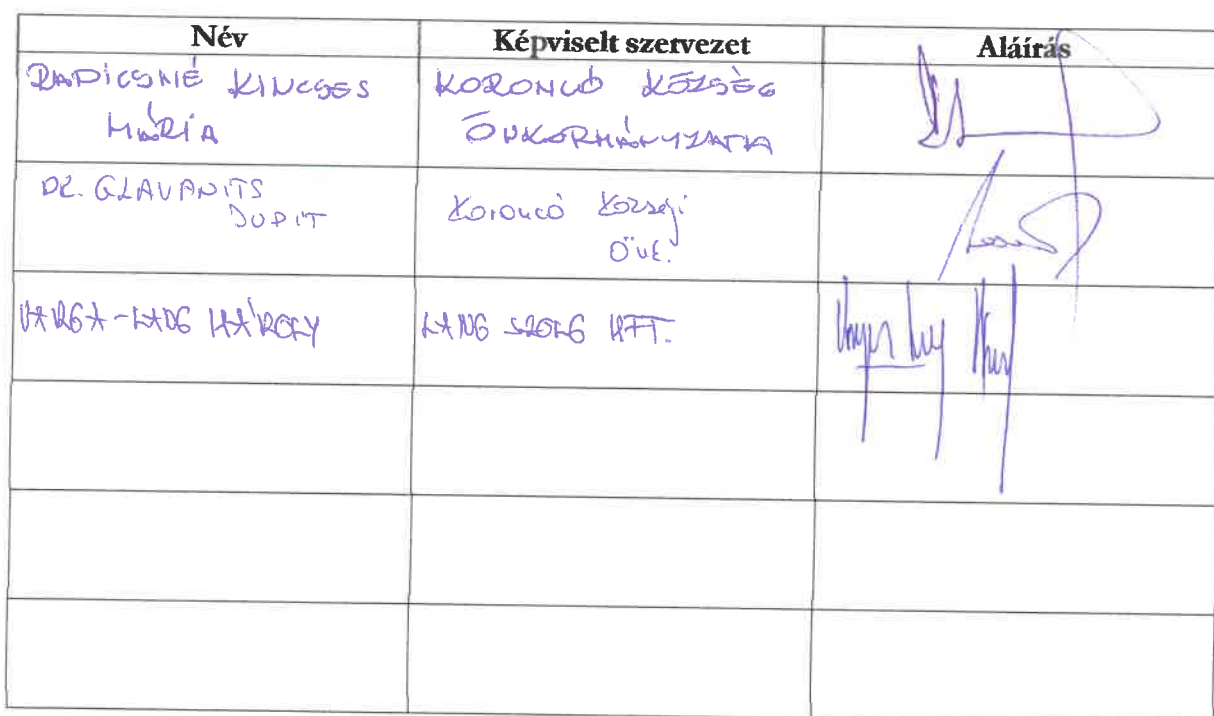 Név Képviselt szervezet Aláírás
RADICSNÉ KINCSES KORONCÓ KÖZSÉG
MÁRIA ÖNKORMÁNYZATA
DR. GLAVANITS
JUDIT
Koroncó Községi
Önk.
VARGA-LANG KÁROLY LANG SZOLG KFT.